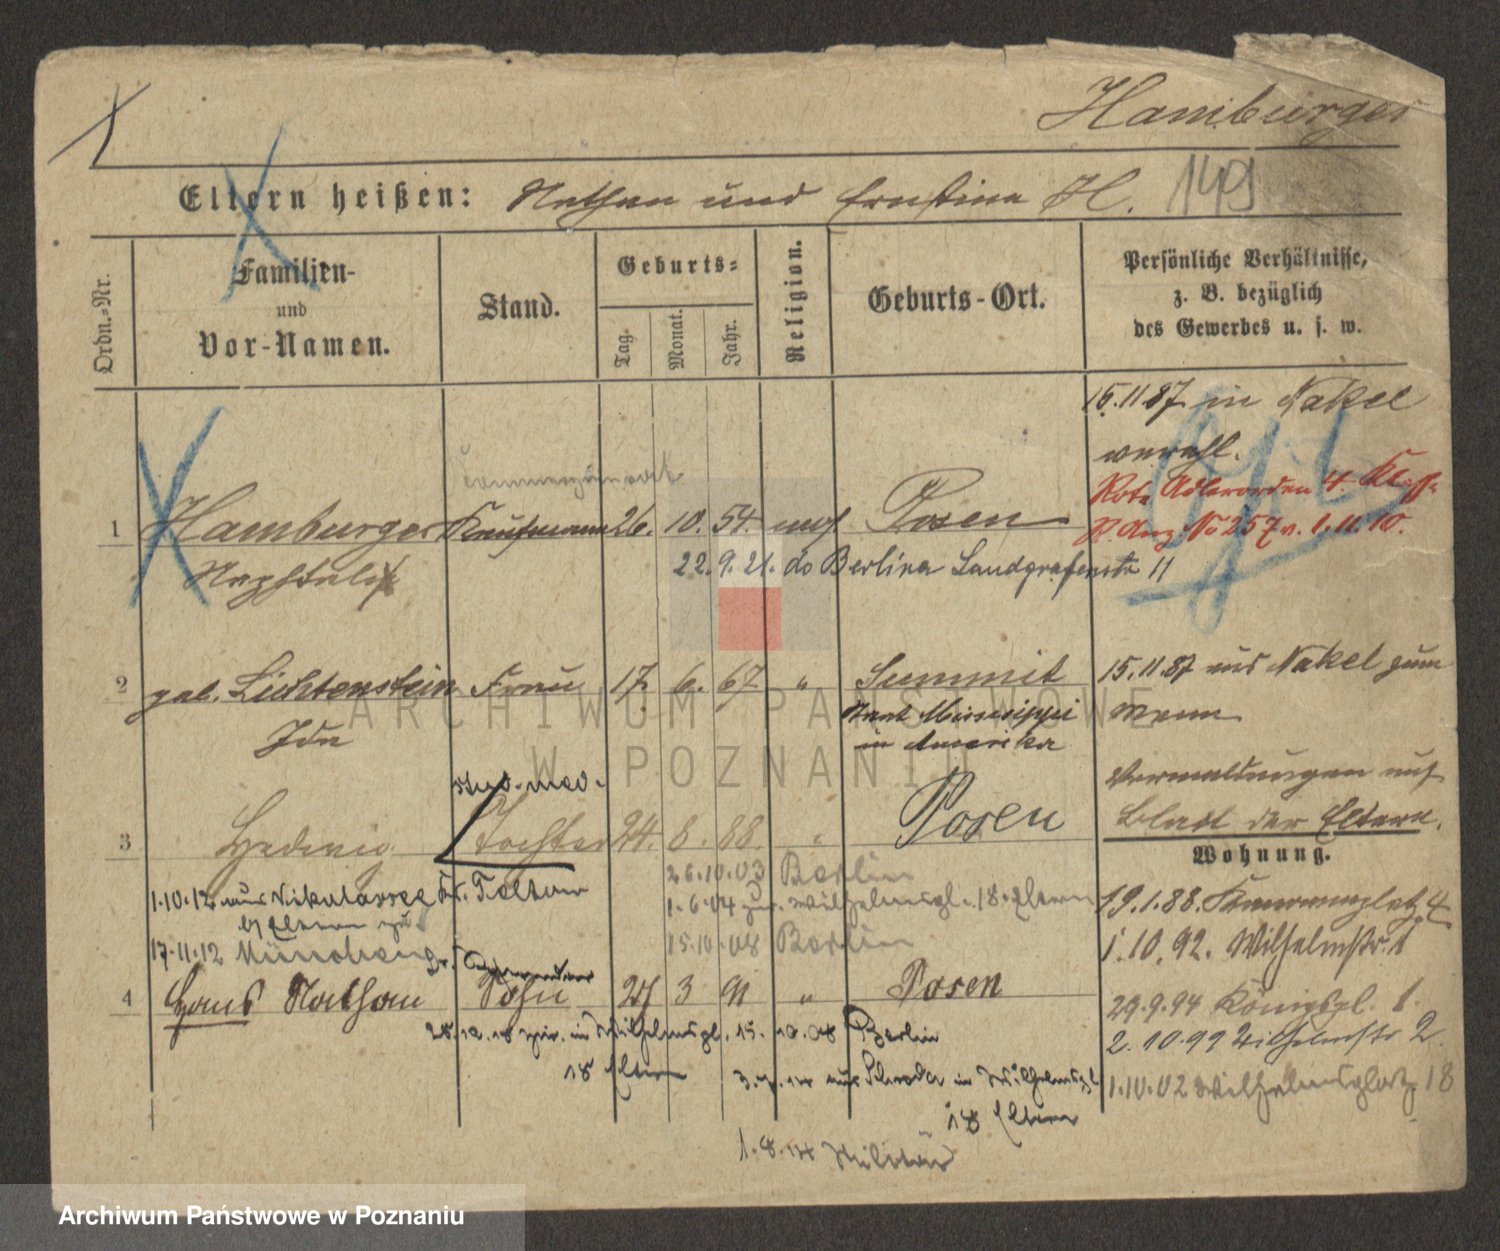 Hamburger
149
Eltern heißen: Nathan und Ernstine H.
Ordn.-Nr.
Familien-
und
Vor-Namen.
Stand.
Geburts-
Tag.
Monat.
Jahr.
Religion.
Geburts-Ort.
Persönliche Verhältnisse,
z. B. bezüglich
des Gewerbes u. s. w.
15.11.87 in Nakel
verehl.
Rote Adlerorden 4. Klasse
R. Anz. No 257 v. 1.11.10.
Kommerzienrat
1 Hamburger Kaufmann 26. 10. 54. mos Posen
Naphtali
22. 9. 21. do Berlin Landgrafenstr 11
2 geb. Lichtenstein Frau 17. 6. 67 " Summit
Ida
Staat Mississippi
in Amerika
15.11.87 aus Nakel zum
Mann
stud. med.
3 Hedwig Tochter 24. 8. 88. " Posen
Vermeldungen auf
Blatt der Eltern.
Wohnung.
26.10.03 Berlin
1.10.12 aus Nikolassee Kr. Teltow
1.6.04 zur. Wilhelmspl. 18. Eltern
17.11.12 München
15.10.08 Berlin
4 Hans Nathan Sohn 3 91 " Posen
15.10.08 Berlin
18 Eltern
3.7.14 aus Schroda in Wilhelmspl
18 Eltern
1.8.14 Militär
19.1.88. 4
1.10.92. Wilhelmstr. 1
29.9.94 Königspl. 1.
2.10.99 Wilhelmstr 2.
1.10.02 Wilhelmsplatz 18
ARCHIWUM PAŃSTWOWE
W POZNANIU
Archiwum Państwowe w Poznaniu